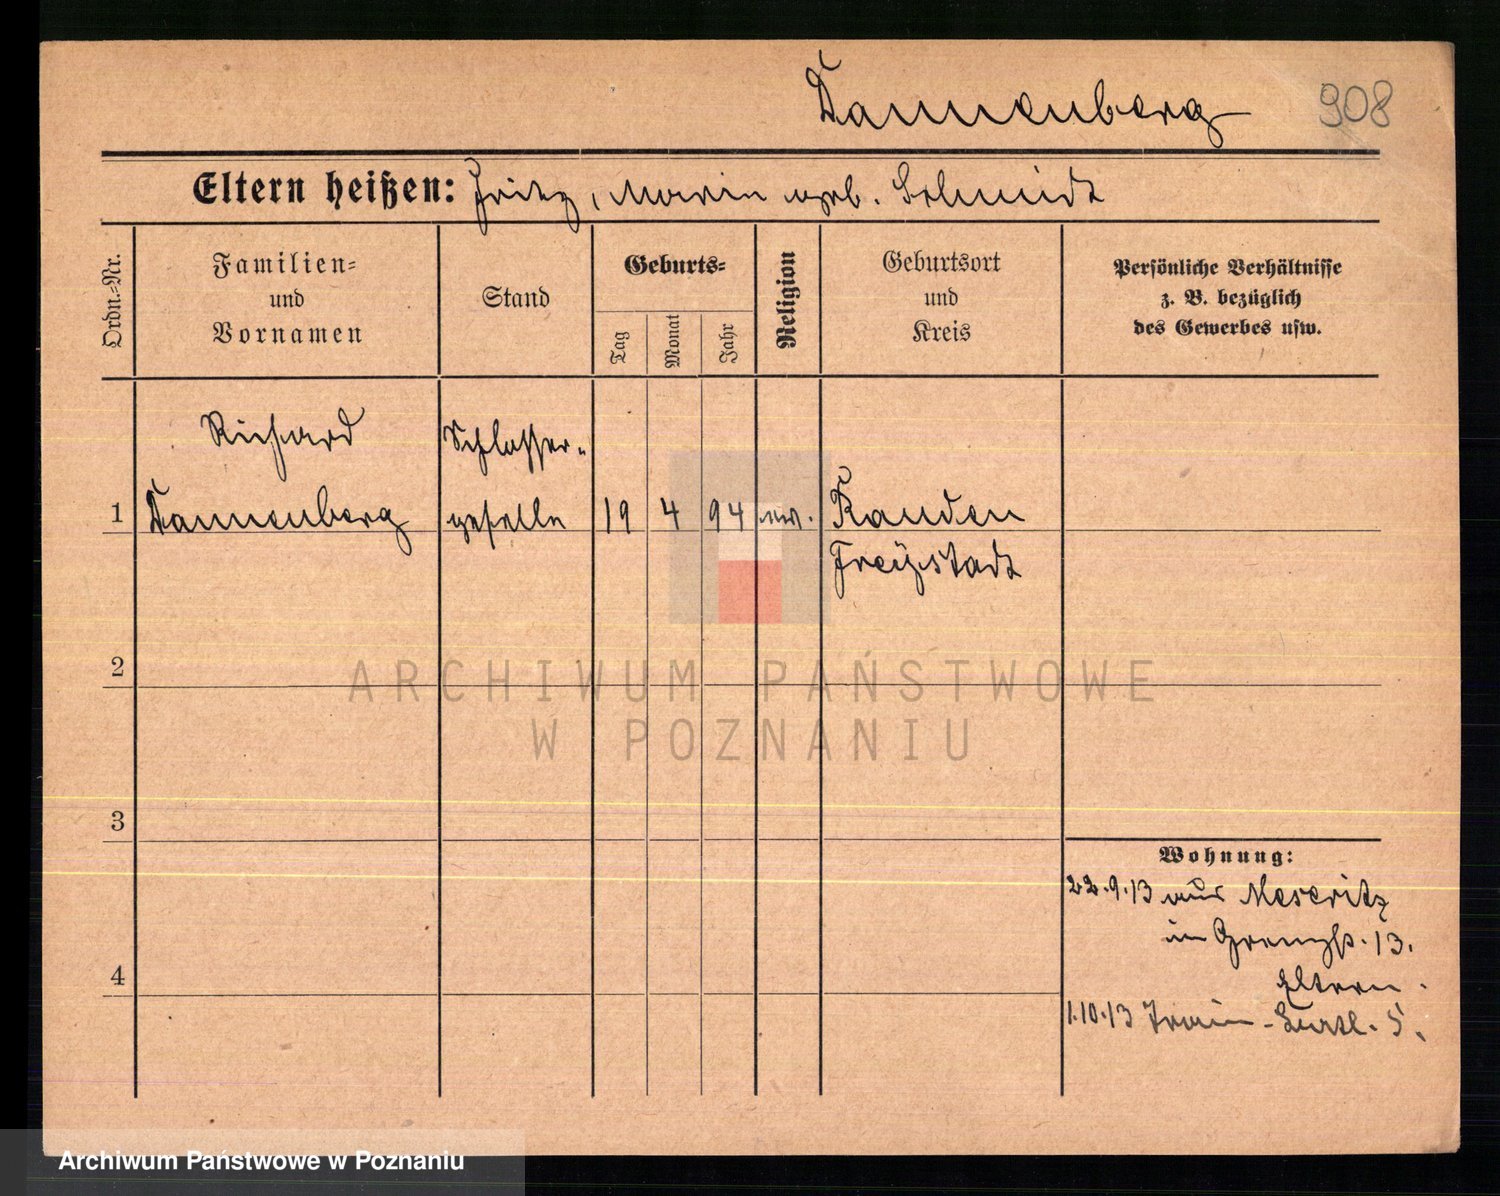 Dannenberg 908
Eltern heißen: Fritz, Marie geb. Schmidt
Ordn.=Nr.
Familien=
und
Vornamen
Stand
Geburts=
Tag
Monat
Jahr
Religion
Geburtsort
und
Kreis
Persönliche Verhältnisse
z. B. bezüglich
des Gewerbes usw.
Richard Schlosser-
1 Dannenberg geselle 19 4 94 ev. Rauden
Freystadt
2
ARCHIWUM PAŃSTWOWE
W POZNANIU
3
Wohnung:
22.9.13 aus Meseritz
in Grenzstr. 13.
4 Eltern.
1.10.13 Train-Batl. 5.
Archiwum Państwowe w Poznaniu